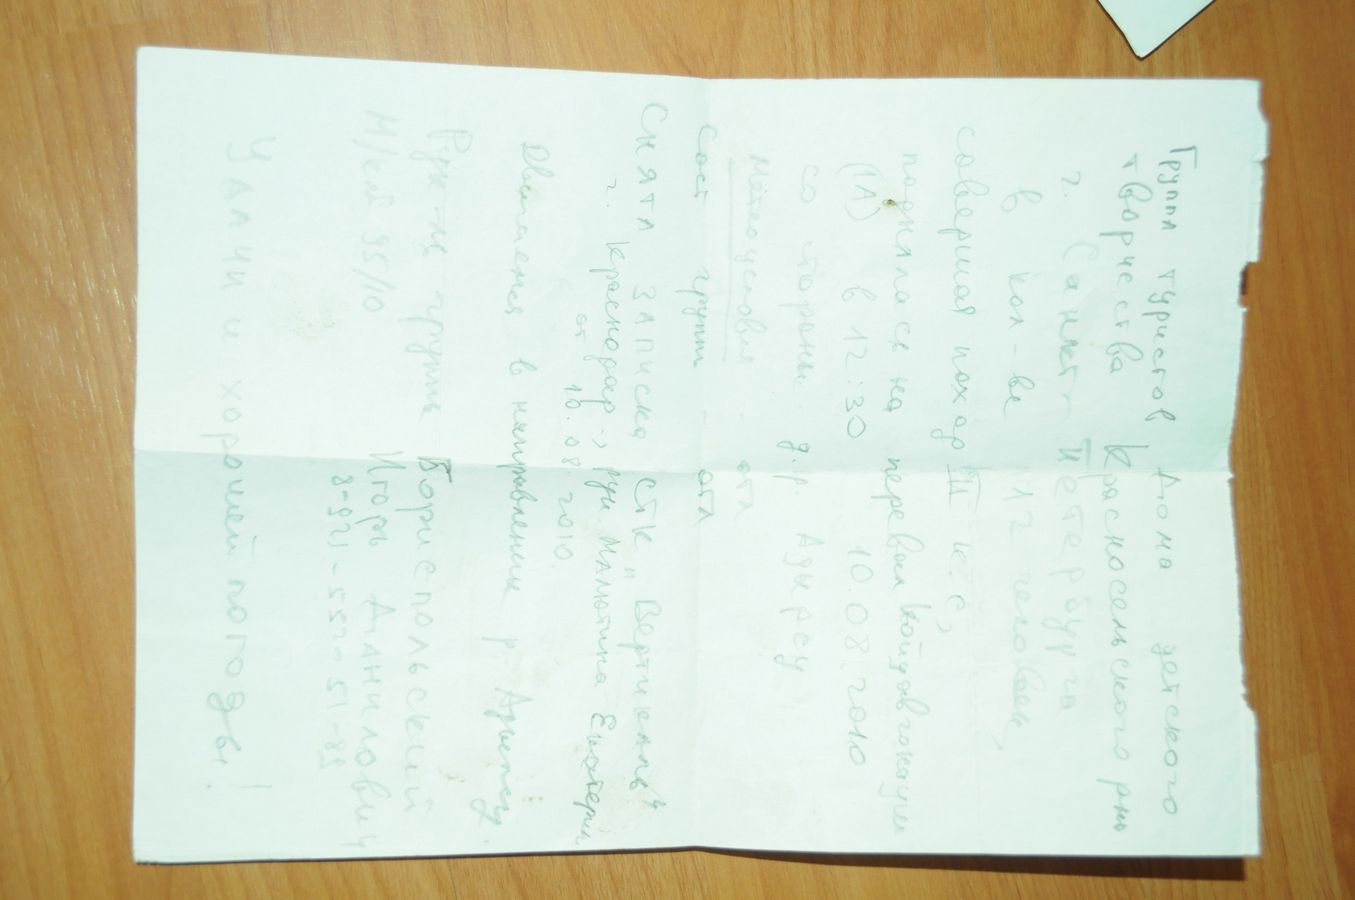 Группа туристов Дома детского
творчества Красносельского р-на
г. Санкт-Петербурга
в кол-ве 12 человек,
совершая поход III к.с,
поднялась на перевал Койавганауш
(1А) в 12:30 10.08.2010
со стороны д.р. Адырсу
Метеоусловия отл
сост группы отл
Снята записка СТК "Вертикаль"
г. Краснодар, рук Малютина Екатерин
от 10.08 2010.
Двигаемся в направлении р.
Рук-ль группы Бориспольский
Игорь Даниилович
М/кн 35/10 8-921-5520-51-82
Удачи и хорошей погоды!